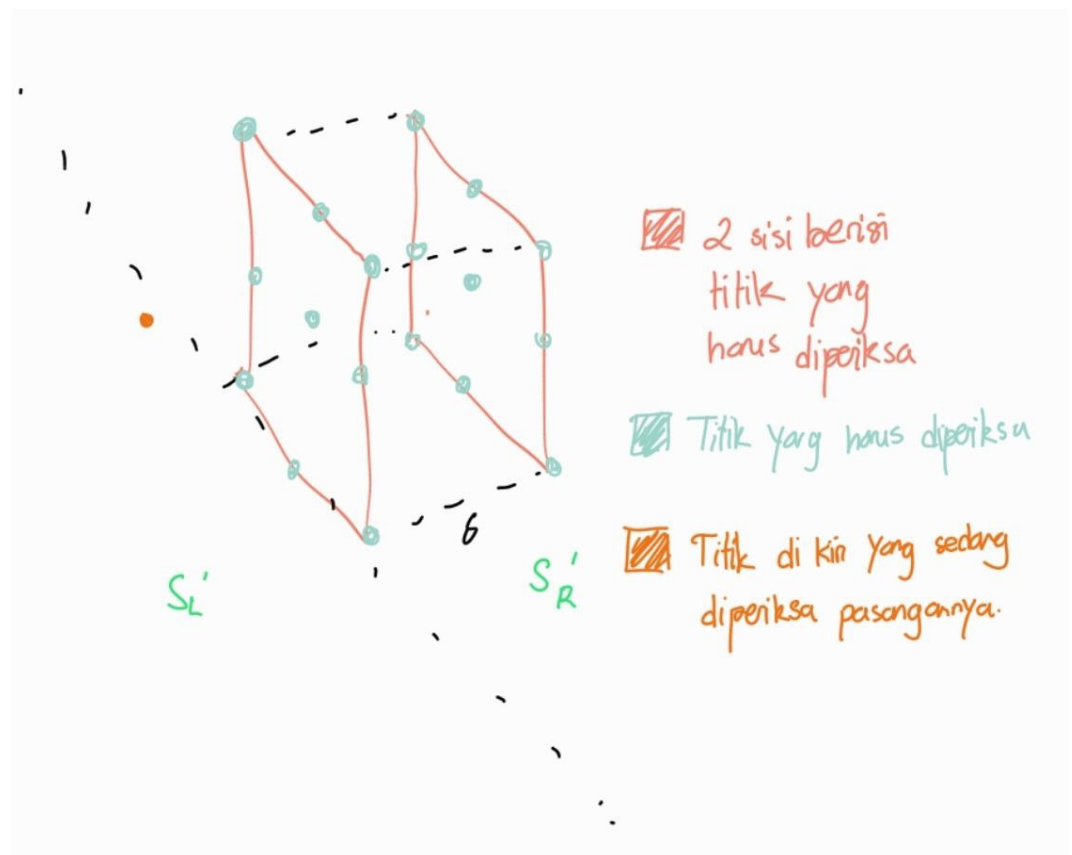 2 sisi berisi
titik yang
harus diperiksa
Titik yang harus diperiksa
Titik di kiri yang sedang
diperiksa pasangannya.
6
S_L'
S_R'